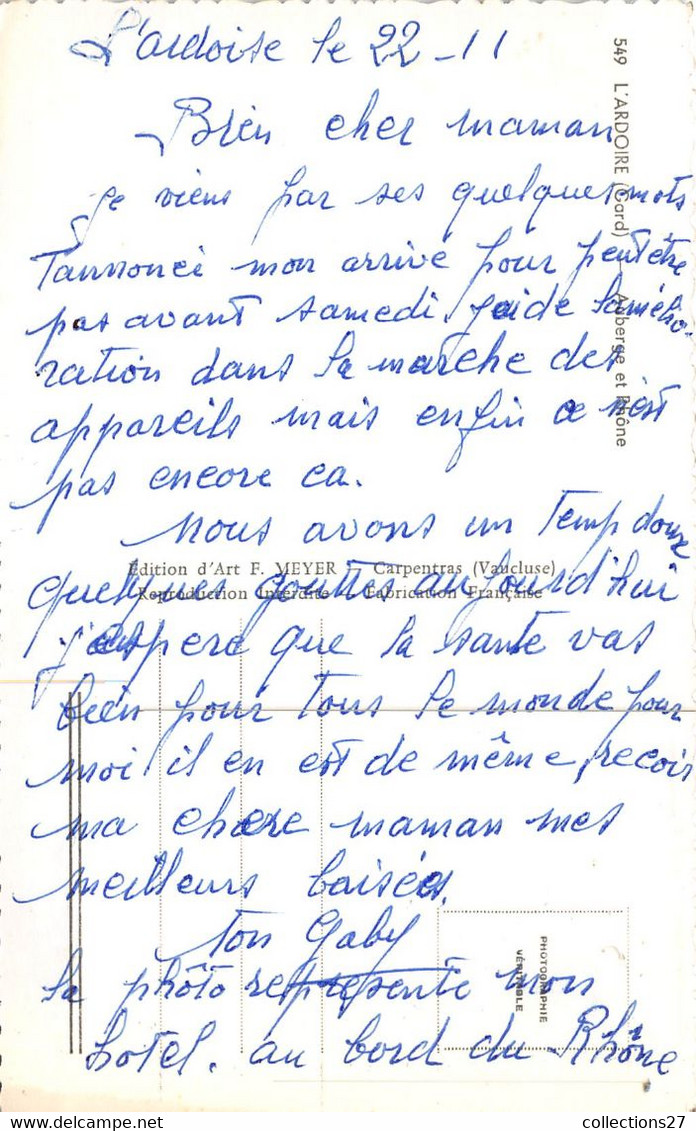 L'ardoise le 22-11
Bien cher maman
je viens par ses quelques mots
t'annoncé mon arrivé pour peut être
pas avant samedi. Y a de l'amélio-
ration dans la marche des
appareils mais enfin ce n'est
pas encore ca.
Nous avons un temp doux
quelques gouttes aujourd'hui
j'espere que la sante vas
bien pour tous le monde pour
moi il en est de même, recois
ma chere maman mes
meilleurs baisés.
ton Gaby
la phôto represente mon
hotel. au bord du Rhône
549 L'ARDOIRE (Gard) - Auberge et Rhône
Édition d'Art F. MEYER - Carpentras (Vaucluse)
Reproduction Interdite - Fabrication Française
PHOTOGRAPHIE
VÉRITABLE
collections27